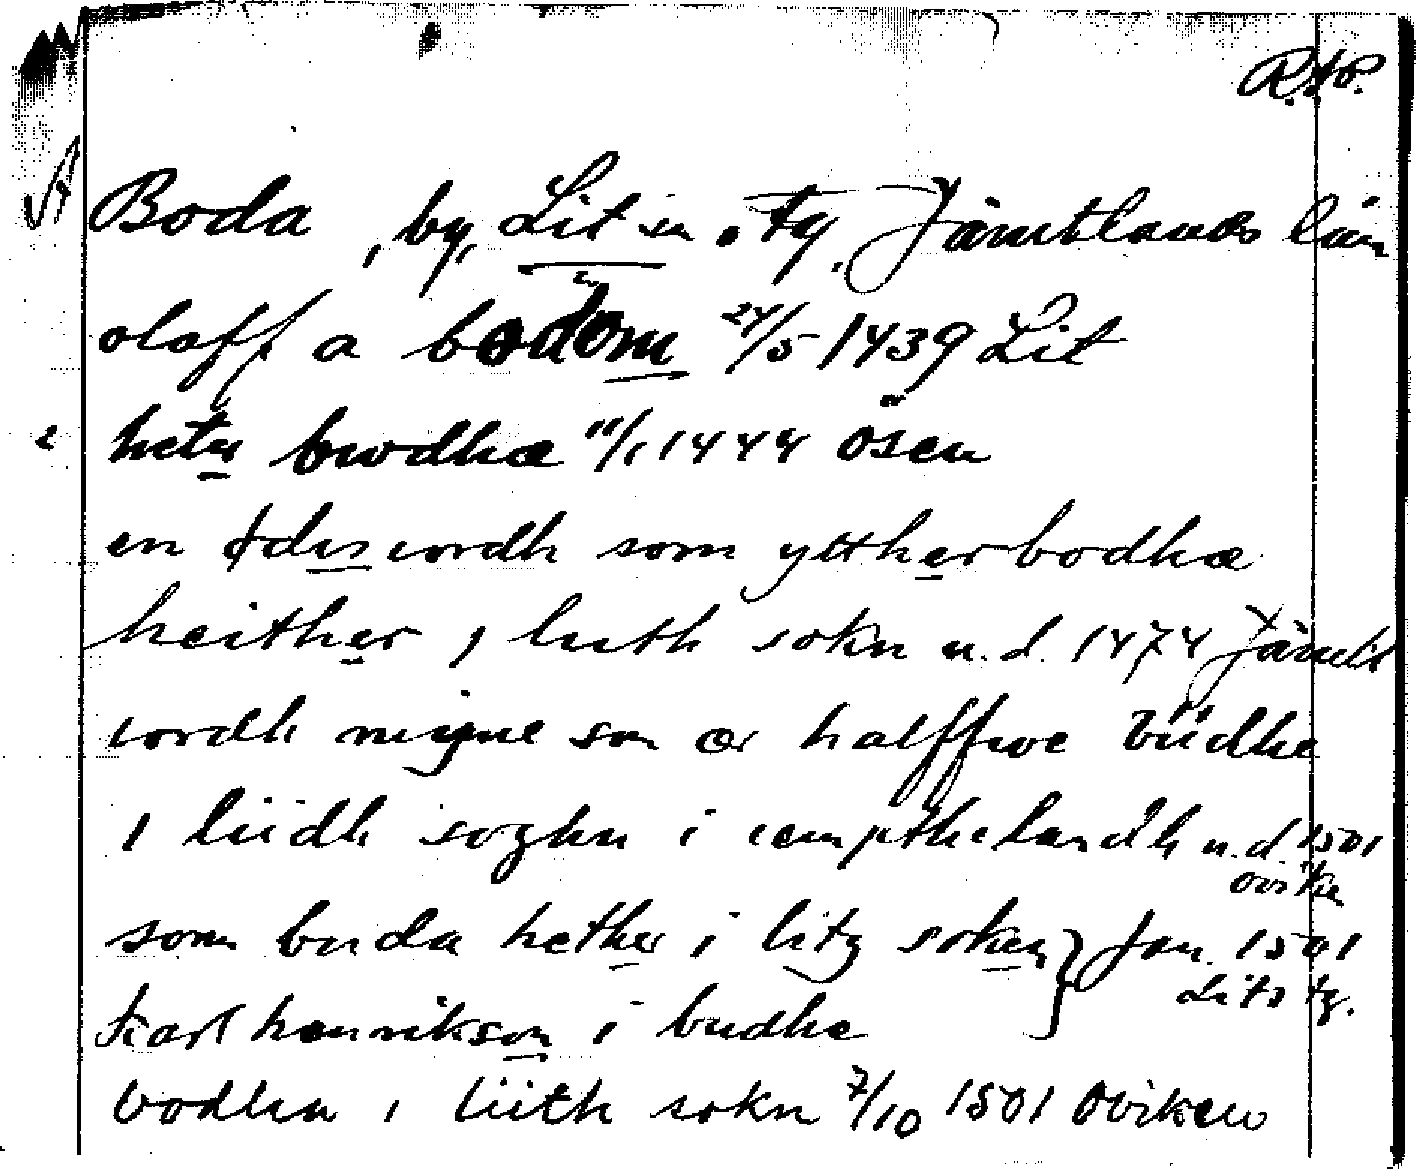 R.A.P.
Boda , by, Lit sn o tg. Jämtlands län
olaff a bodom 24/5 1439 Lit
heter bwdhæ 11/1 1444 Åsen
en ødis iordh som yttherbodhæ
heither j luth sokn u.d. 1474 Jämtl
iordh mÿne som ær halffwe büdhe
I liidh soghn i iempthelandh u.d. 1501
oviken
som buda hether i litz soken } Jan. 1501
Lits tg.
karl henrikson i budhe
bodhu i liith sokn 7/10 1501 Oviken